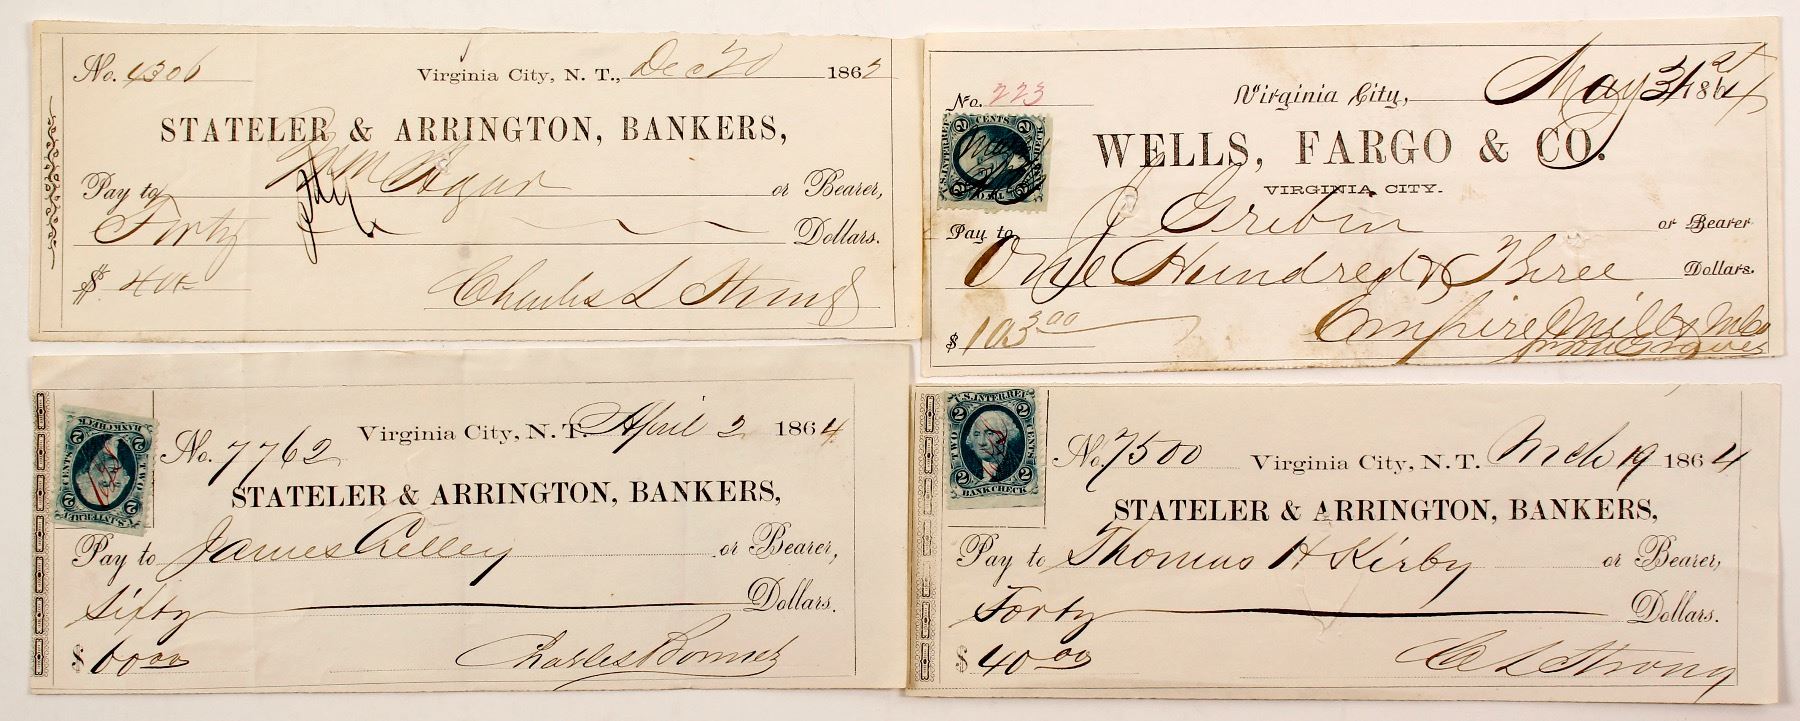 No. 4306 Virginia City, N. T., Dec 20 1862
STATELER & ARRINGTON, BANKERS,
Pay to Wm Hagar or Bearer,
Forty Dollars.
$ 40
Charles L Strong
No. 223 Virginia City, May 31st 1864
U.S. INTER. REV.
2 CENTS 2
WELLS, FARGO & CO.
VIRGINIA CITY.
Pay to J Gribin or Bearer
One Hundred & Three Dollars.
$ 103.00 Empire Mill & M Co
No. 7762 Virginia City, N. T. April 2 1864
U.S. INTER. REV.
TWO CENTS
BANK CHECK
STATELER & ARRINGTON, BANKERS,
Pay to James Kelley or Bearer,
Sixty Dollars.
$ 60 00 Charles Bonner
U.S. INTER. REV.
2 2
TWO CENTS
2 2
BANK CHECK
No. 7500 Virginia City, N.T. Mch 19 1864
STATELER & ARRINGTON, BANKERS,
Pay to Thomas H Kirby or Bearer,
Forty Dollars.
$ 40 00 C L Strong